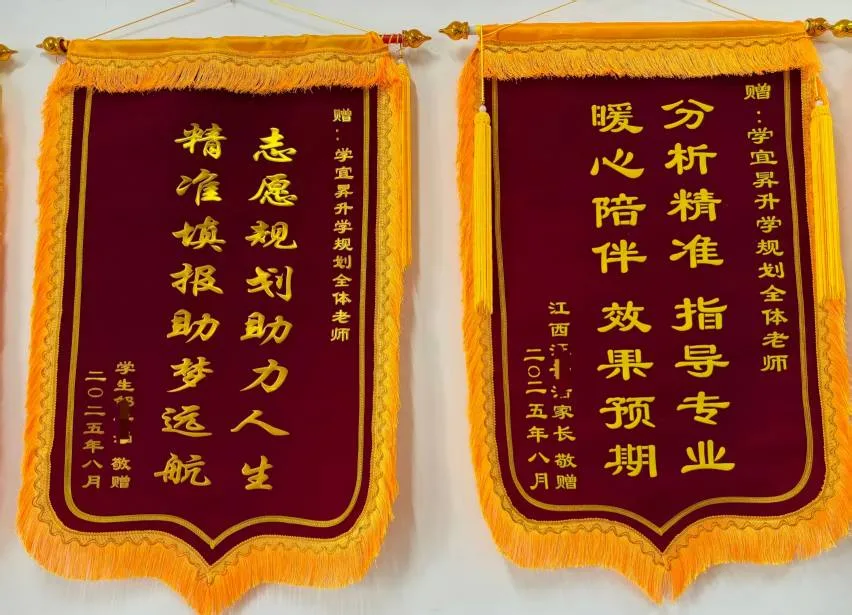 赠：学宜昇升学规划全体老师
志愿规划助力人生
精准填报助梦远航
学生 敬赠
二〇二五年八月
赠：学宜昇升学规划全体老师
分析精准 指导专业
暖心陪伴 效果预期
江西 家长 敬赠
二〇二五年八月